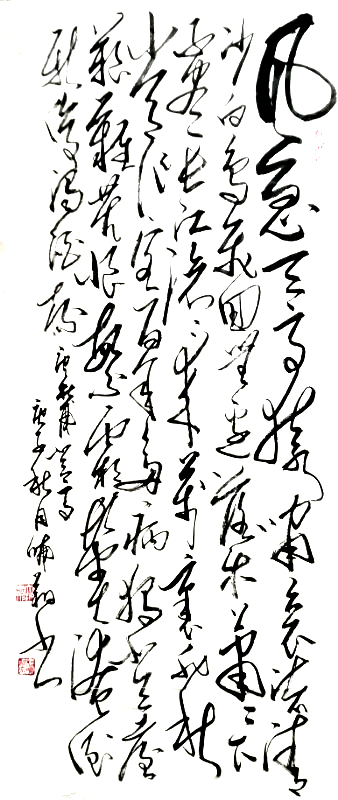 風急天高猿嘯哀渚清
沙白鳥飛回無邊落木蕭〻下
不盡長江滾〻來萬里悲秋
常作客百年多病獨登臺
艱難苦恨繁霜鬢潦倒
新停濁酒杯 唐杜甫登高
庚子秋月